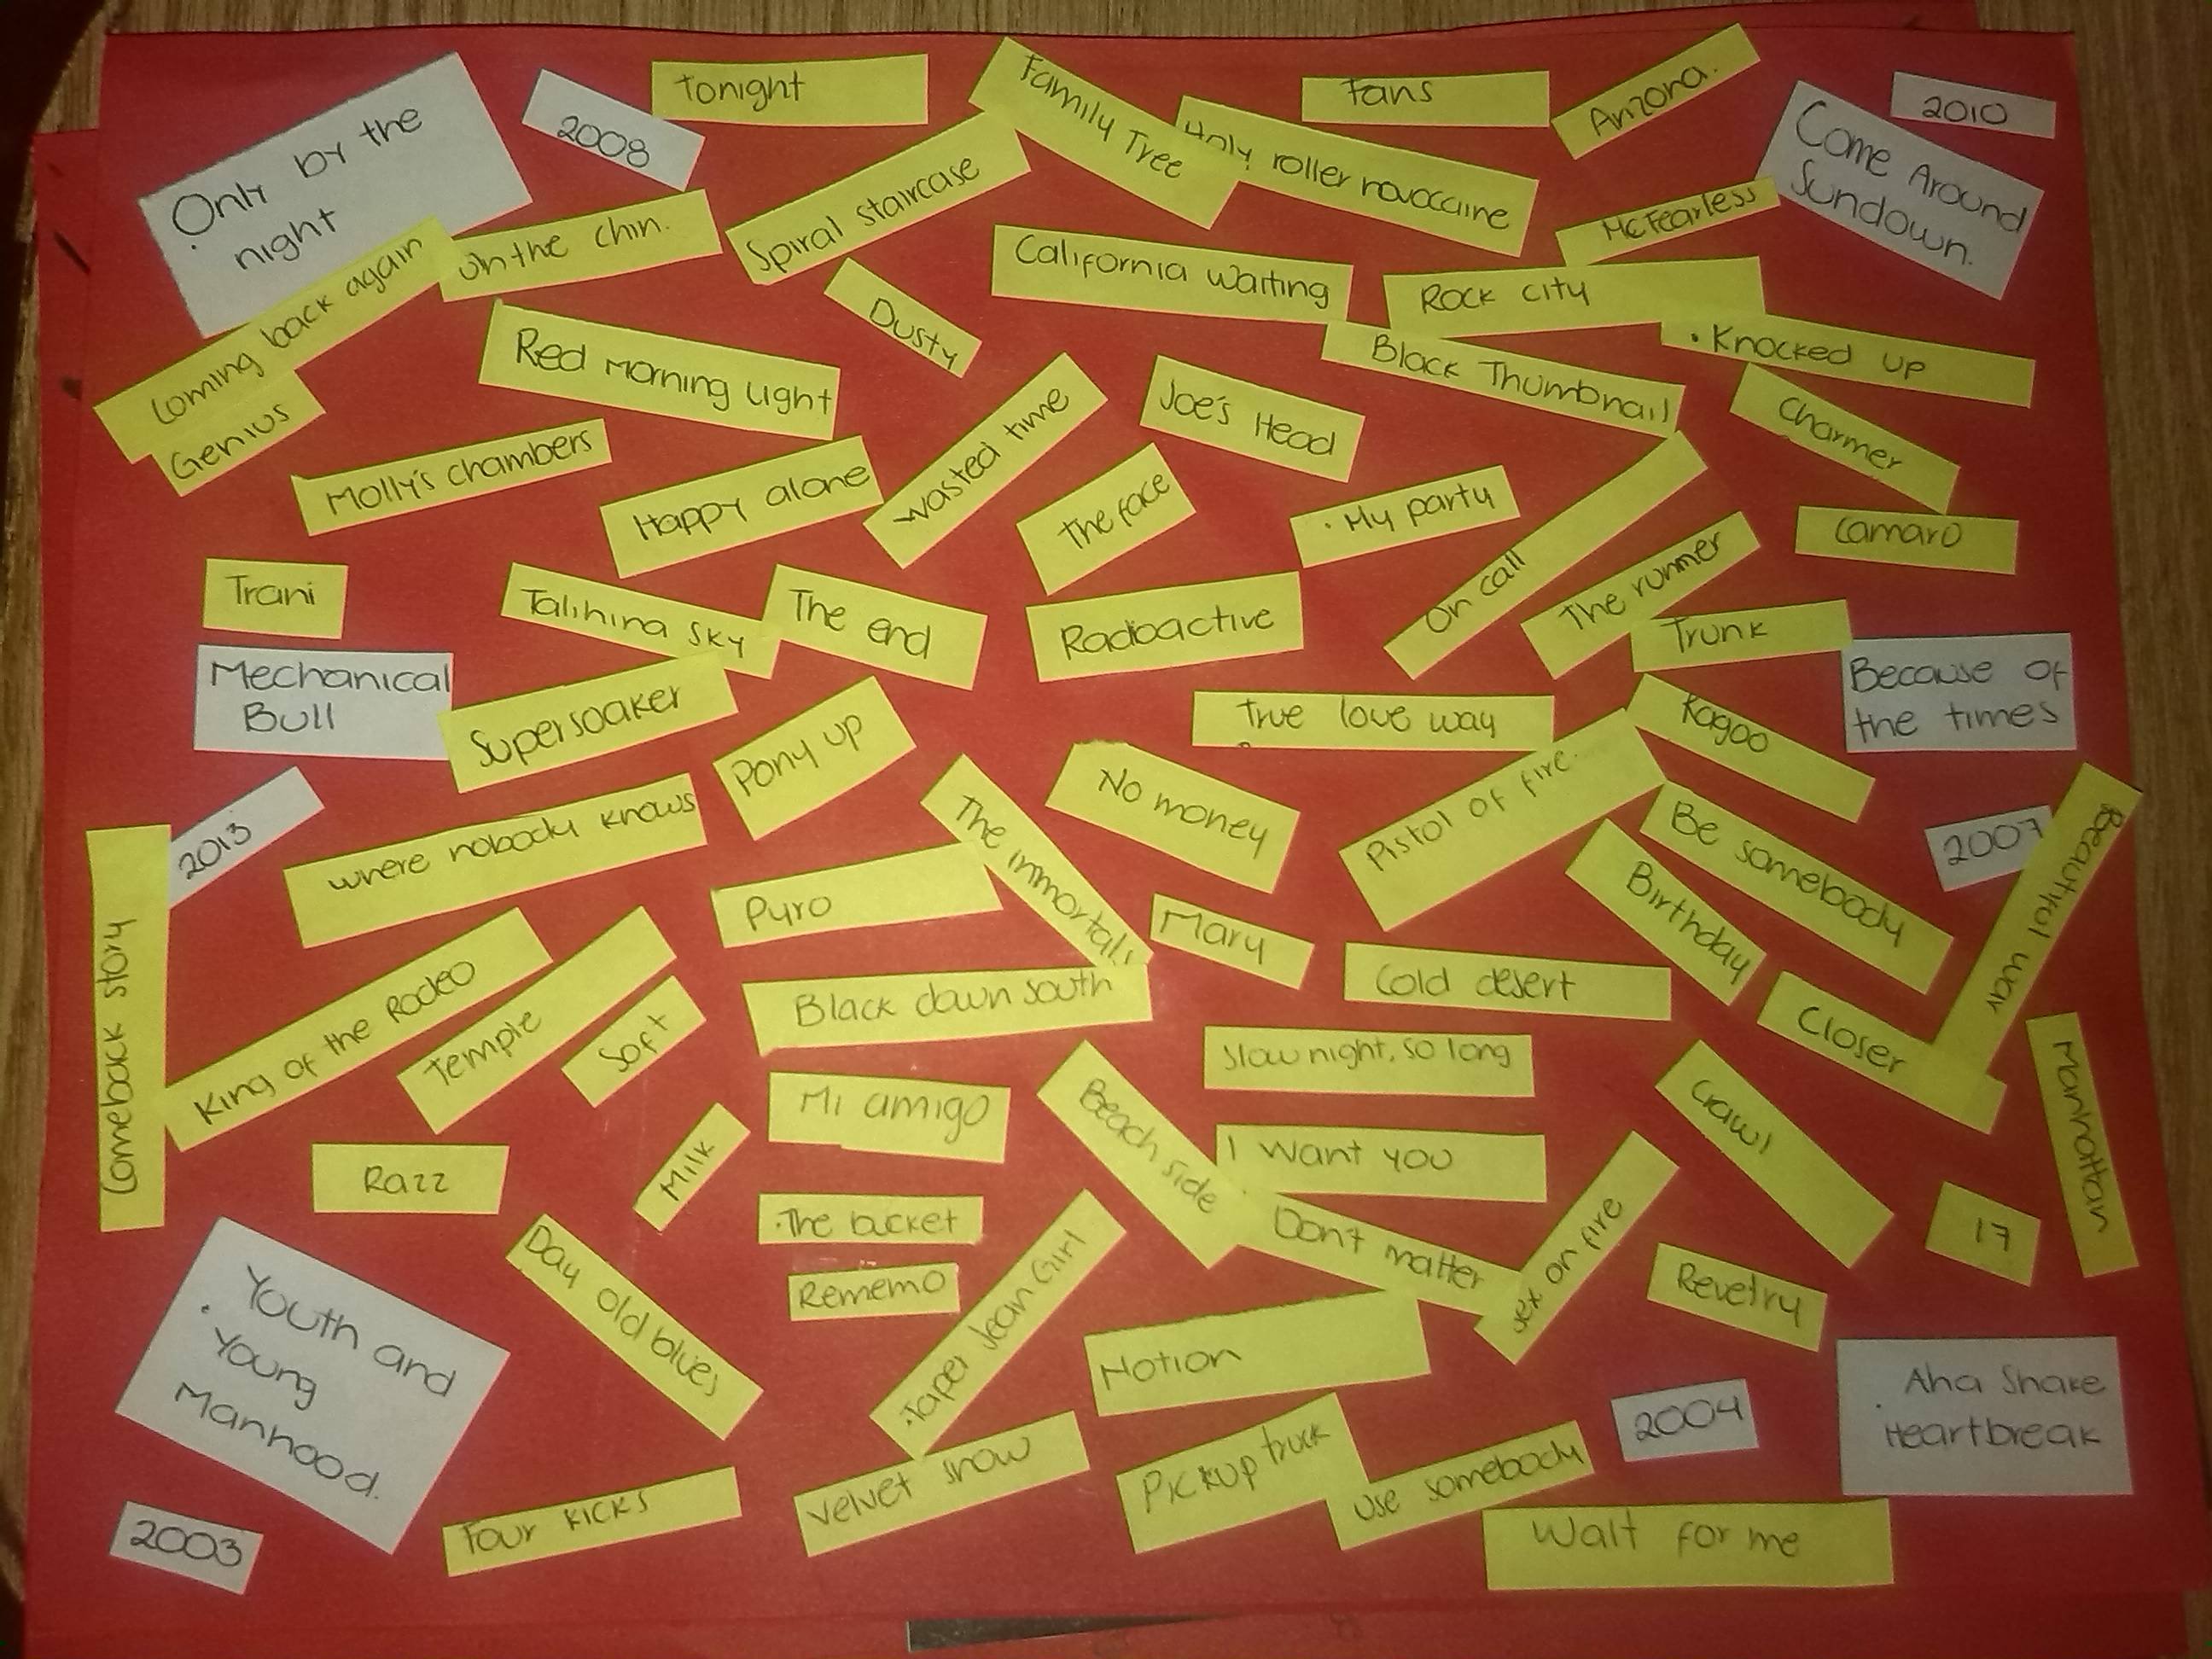 Tonight
Family Tree
Fans
Arizona.
2010
2008
Only by the
night
Holy roller novocaine
Come Around
Sundown.
Spiral staircase
McFearless
On the chin.
California waiting
Rock city
Coming back again
Dusty
. Knocked up
Red morning light
Black Thumbnail
Joe's Head
Charmer
Genius
Molly's chambers
Happy alone
wasted time
the face
. My party
On call
Camaro
The runner
Trani
Talihina sky
The end
Radioactive
Trunk
Mechanical
Bull
Because of
the times
Supersoaker
Pony up
True love way
Kagoo
No money
Pistol of fire.
Be somebody
2007
Beautiful war
2013
where nobody knows
The immortals
Birthday
Pyro
Mary
Comeback story
King of the Rodeo
Temple
Soft
Black down south
Cold desert
Closer
Slow night, so long
Mi amigo
Beach side
Crawl
Manhattan
Razz
Milk
I want you
.The bucket
Don't matter
sex on fire
17
Day old blues
Rememo
.Taper Jean Girl
Revelry
Youth and
. Young
Manhood.
Notion
2004
Aha Shake
Heartbreak
Velvet snow
Pickup truck
use somebody
2003
Four kicks
Wait for me